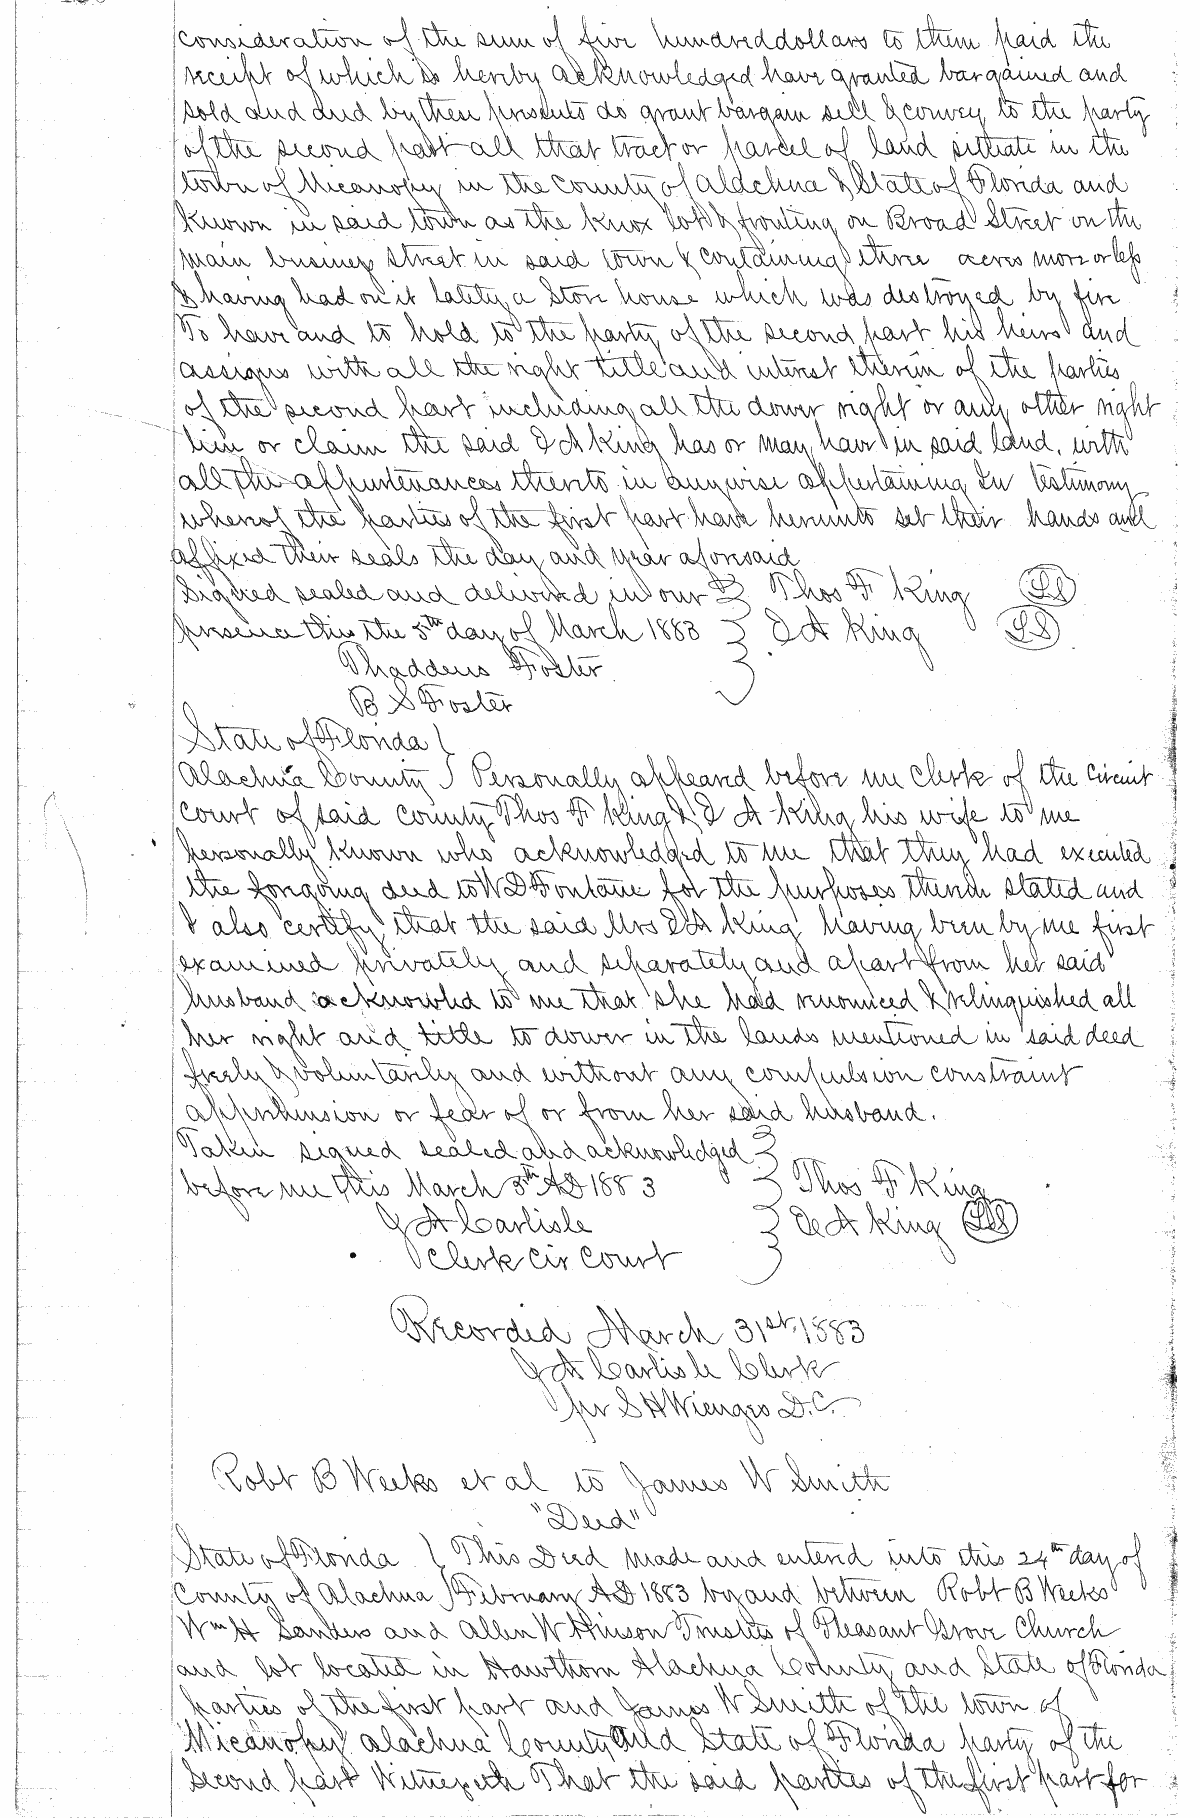 consideration of the sum of five hundred dollars to them paid the
receipt of which is hereby acknowledged have granted bargained and
sold and and by these presents do grant bargain sell & convey to the party
of the second part all that tract or parcel of land situate in the
town of Micanopy in the County of Alachua & State of Florida and
known in said town as the Knox lot & fronting on Broad Street on the
main business street in said town & containing three acres more or less
& having had on it lately a Store house which was destroyed by fire
To have and to hold to the party of the second part his heirs and
assigns with all the right title and interest therein of the parties
of the second part including all the dower right or any other right
lien or claim the said I A King has or may have in said land. with
all the appurtenances thereto in anywise appertaining In testimony
whereof the parties of the first part have hereunto set their hands and
affixed their seals the day and year aforesaid
Signed sealed and delivered in our } Thos F King LS
presence this the 5th day of March 1883 } I A King LS
Thaddeus Foster
B S Foster
State of Florida }
Alachua County } Personally appeared before me Clerk of the Circuit
Court of said County Thos F King & I A King his wife to me
personally known who acknowledged to me that they had executed
the foregoing deed to W D Fontane for the purposes therein stated and
I also certify that the said Mrs I A King having been by me first
examined privately and separately and apart from her said
husband acknowled to me that she had renounced & relinquished all
her right and title to dower in the lands mentioned in said deed
freely & voluntarily and without any compulsion constraint
apprehension or fear of or from her said husband.
Taken signed sealed and acknowledged }
before me this March 5th AD 1883 } Thos F King
J A Carlisle } I A King LS
Clerk Cir Court
Recorded March 31st, 1883
J A Carlisle Clerk
per S H Wienges D.C.
Robt B Weeks et al to James W Smith
"Deed"
State of Florida } This Deed made and entered into this 24th day of
County of Alachua } February AD 1883 by and between Robt B Weeks
Wm H Sanders and Allen W Hinson Trustees of Pleasant Grove Church
and lot located in Hawthorn Alachua County and State of Florida
parties of the first part and James W Smith of the town of
Micanopy Alachua County and State of Florida party of the
second part Witnesseth That the said parties of the first part for